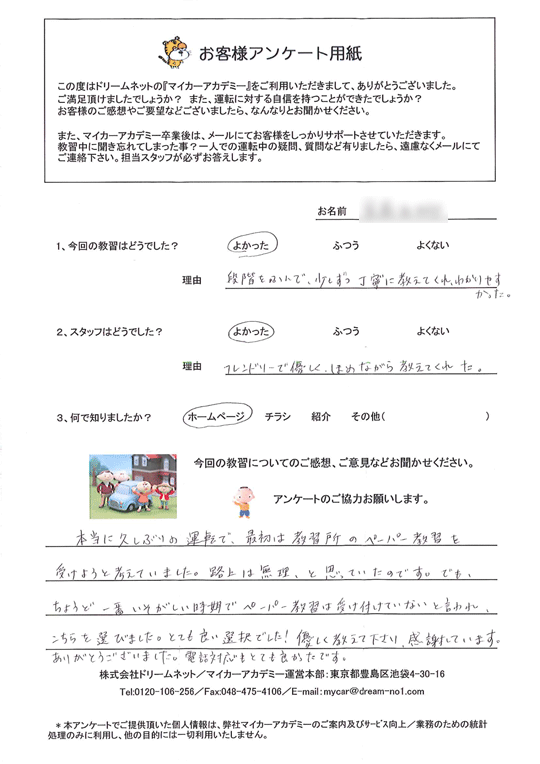 お客様アンケート用紙
この度はドリームネットの『マイカーアカデミー』をご利用いただきまして、ありがとうございました。
ご満足頂けましたでしょうか？ また、運転に対する自信を持つことができたでしょうか？
お客様のご感想やご要望などございましたら、なんなりとお聞かせください。
また、マイカーアカデミー卒業後は、メールにてお客様をしっかりサポートさせていただきます。
教習中に聞き忘れてしまった事？一人での運転中の疑問、質問など有りましたら、遠慮なくメールにて
ご連絡下さい。担当スタッフが必ずお答えします。
お名前
1、今回の教習はどうでした？ よかった ふつう よくない
理由 段階をふんで、少しずつ丁寧に教えてくれ、わかりやす
かった。
2、スタッフはどうでした？ よかった ふつう よくない
理由 フレンドリーで優しく、ほめながら教えてくれた。
3、何で知りましたか？ ホームページ チラシ 紹介 その他( )
今回の教習についてのご感想、ご意見などお聞かせください。
アンケートのご協力お願いします。
本当に久しぶりの運転で、最初は教習所のペーパー教習を
受けようと考えていました。路上は無理、と思っていたのです。でも、
ちょうど一番いそがしい時期でペーパー教習は受け付けていないと言われ、
こちらを選びました。とても良い選択でした！優しく教えて下さり、感謝しています。
ありがとうございました。電話対応もとても良かったです。
株式会社ドリームネット／マイカーアカデミー運営本部：東京都豊島区池袋4-30-16
Tel:0120-106-256／Fax:048-475-4106／E-mail:mycar@dream-no1.com
＊本アンケートでご提供頂いた個人情報は、弊社マイカーアカデミーのご案内及びサービス向上／業務のための統計
処理のみに利用し、他の目的には一切利用いたしません。